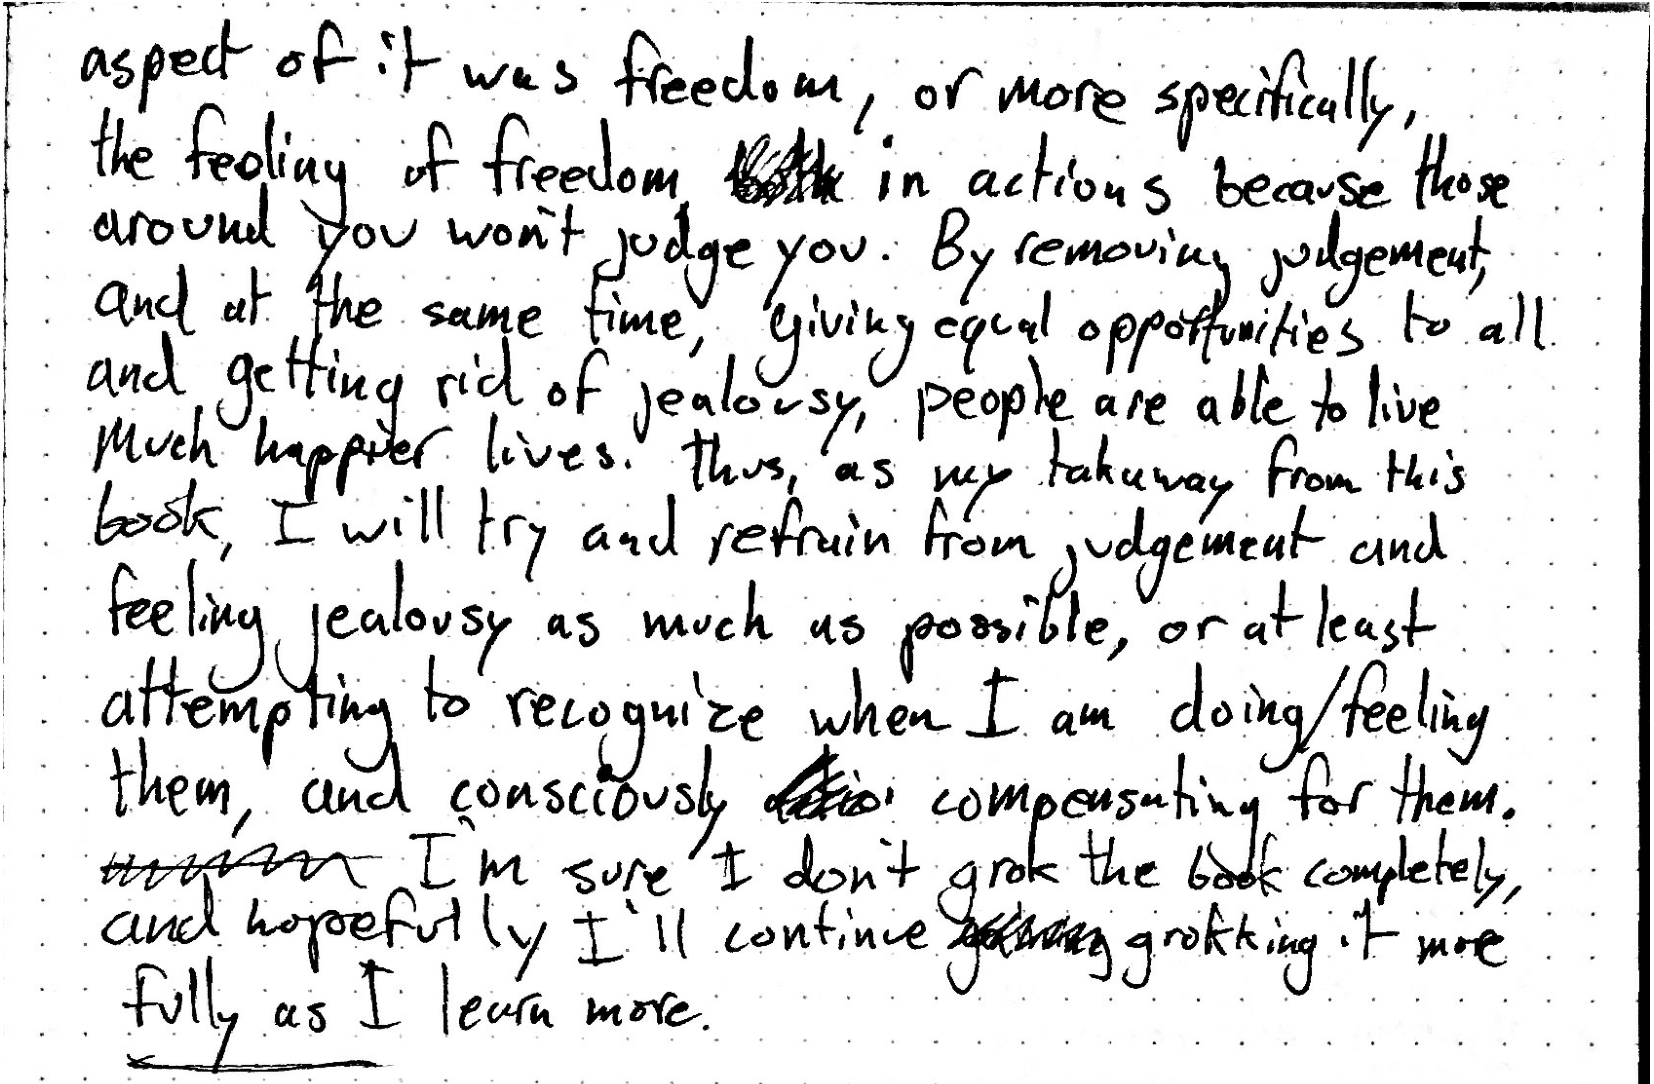 aspect of it was freedom, or more specifically,
the feeling of freedom in actions because those
around you won't judge you. By removing judgement,
and at the same time, giving equal opportunities to all
and getting rid of jealousy, people are able to live
much happier lives. Thus, as my takeaway from this
book, I will try and refrain from judgement and
feeling jealousy as much as possible, or at least
attempting to recognize when I am doing/feeling
them, and consciously compensating for them.
I'm sure I don't grok the book completely,
and hopefully I'll continue grokking it more
fully as I learn more.